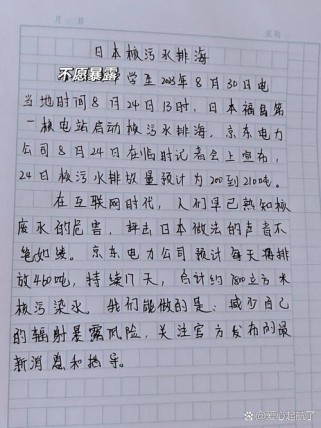 日本核污水排海
不愿暴露 学生 2023年8月30日电
当地时间8月24日13时，日本福岛第
一核电站启动核污水排海，东京电力
公司8月24日在临时记者会上宣布，
24日核污水排放量预计为200到210吨。
在互联网时代，人们早已熟知核
废水的危害，抨击日本做法的声音不
绝如缕。东京电力公司预计每天将排
放460吨，持续17天，合计约7800立方米
核污染水。我们能做的是：减少自己
的辐射暴露风险，关注官方发布的最
新消息和指导。
@爱心起航了